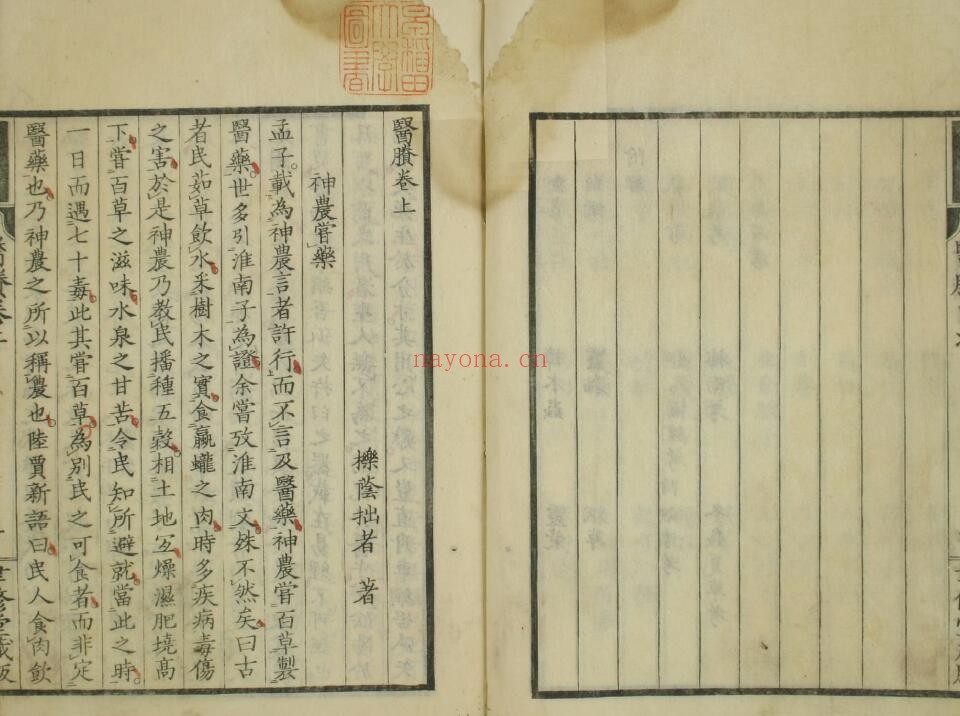 醫賸卷上
櫟蔭拙者 著
神農嘗藥
孟子載為神農言者許行而不言及醫藥神農嘗百草製
醫藥世多引淮南子為證余嘗攷淮南文殊不然矣曰古
者民茹草飲水采樹木之實食蠃蠬之肉時多疾病毒傷
之害於是神農乃教民播種五穀相土地宜燥濕肥墝高
下嘗百草之滋味水泉之甘苦令民知所避就當此之時
一日而遇七十毒此其嘗百草為別民之可食者而非定
醫藥也乃神農之所以稱農也陸賈新語曰民人食肉飲
醫賸卷上
nayona.cn